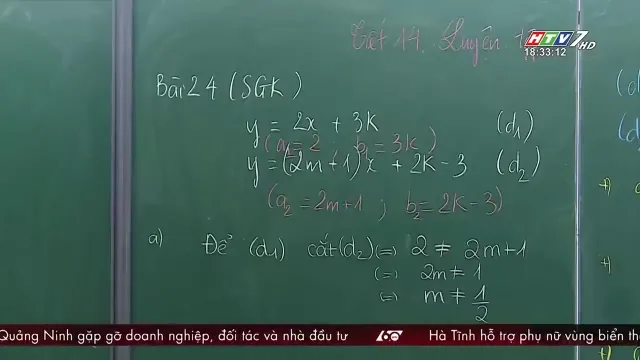 HTV7 HD
18:33:12
Tiết 14. Luyện
Bài 24 (SGK)
y = 2x + 3k (d1)
(a1 = 2 b1 = 3k)
y = (2m+1)x + 2k-3 (d2)
(a2 = 2m+1 ; b2 = 2k-3)
a) Để (d1) cắt (d2) (=) 2 ≠ 2m+1
(=) 2m ≠ 1
(=) m ≠ 1/2
Quảng Ninh gặp gỡ doanh nghiệp, đối tác và nhà đầu tư
Hà Tĩnh hỗ trợ phụ nữ vùng biển